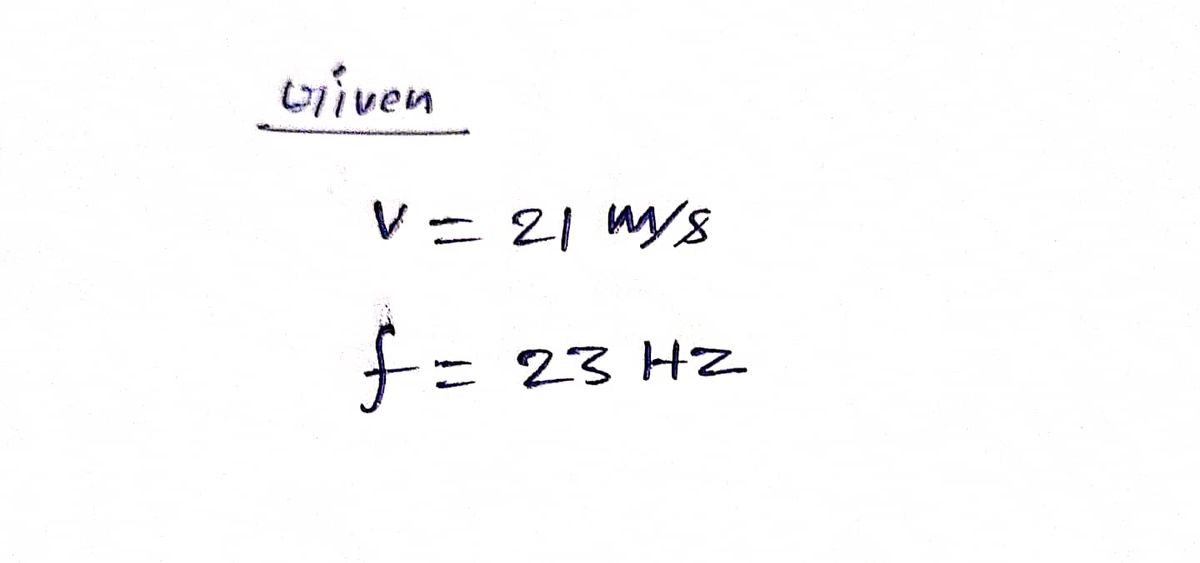 Given
v = 21 m/s
f = 23 Hz